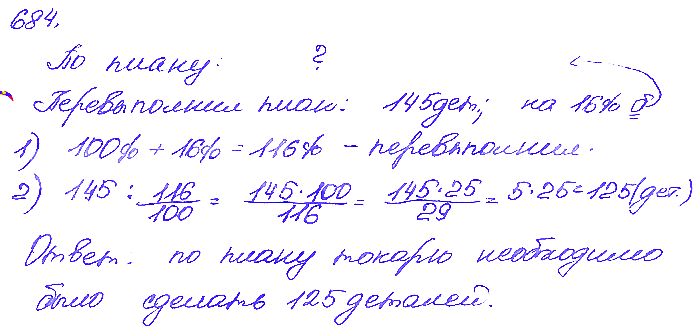 684.
По плану: ?
Перевыполнил план: 145дет; на 16% б
1) 100% + 16% = 116% - перевыполнил.
2) 145 : 116/100 = 145·100/116 = 145·25/29 = 5·25=125(дет.)
Ответ. по плану токарю необходимо
было сделать 125 деталей.